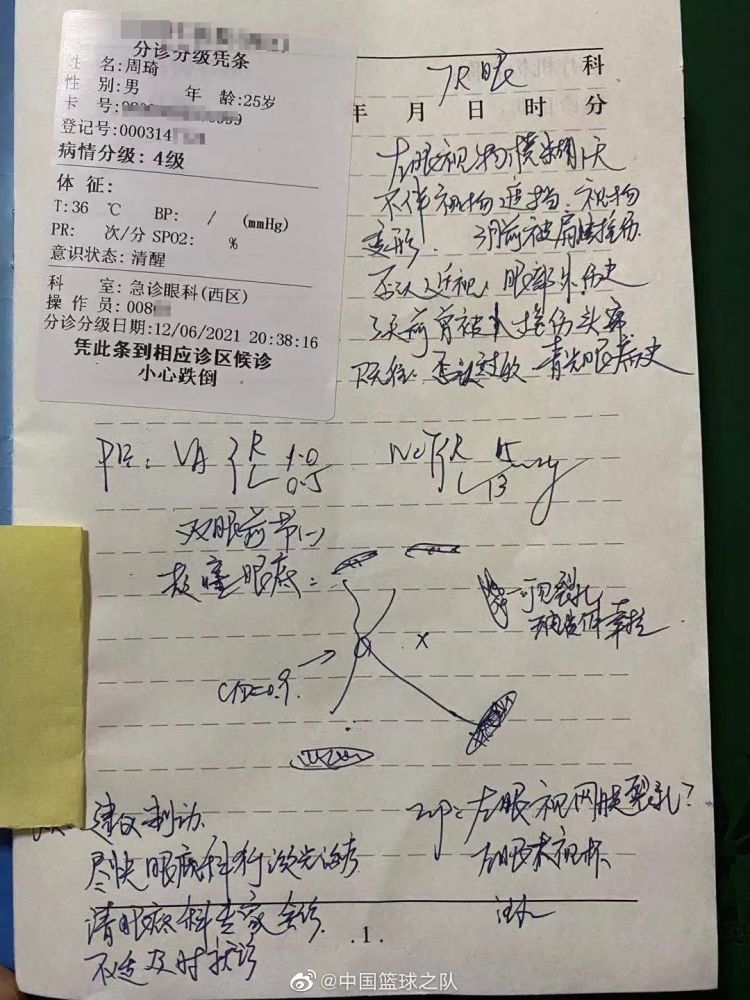 分诊分级凭条
姓 名:周琦
性 别:男 年 龄:25岁
卡 号:
登记号:000314
病情分级: 4级
体 征:
T:36 ℃ BP: / (mmHg)
PR: 次/分 SPO2: %
意识状态: 清醒
科 室: 急诊眼科(西区)
操 作 员: 008
分诊分级日期:12/06/2021 20:38:16
凭此条到相应诊区候诊
小心跌倒
眼 科
年 月 日 时 分
左眼视物模糊1天
不伴视物遮挡、视物
变形. 3月前被肩撞伤
否认近视、眼部外伤史
3天前曾被人撞伤头部
否认 青光眼病史
PE: VA R 1.0
L 0.5
R 15 mmHg
L 13
双眼前节(-)
散瞳眼底:
可见裂孔
牵拉
C/D=0.9.
建议制动.
尽快眼底科行激光治疗
请眼底科专家会诊.
不适及时就诊
Imp: 左眼视网膜裂孔?
左眼大视杯
.1.
@中国篮球之队